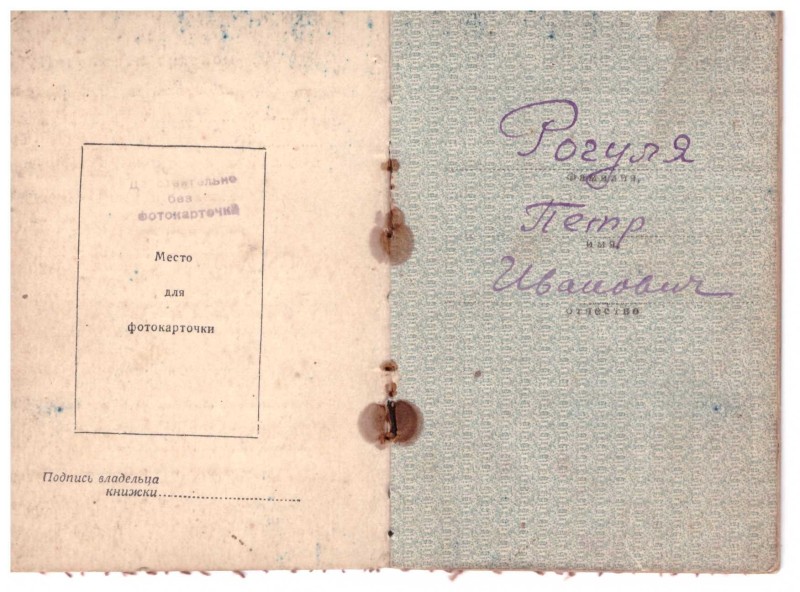 Действительно
без
фотокарточки
Место
для
фотокарточки
Подпись владельца
книжки
Рогуля
фамилия,
Петр
имя,
Иванович
отчество